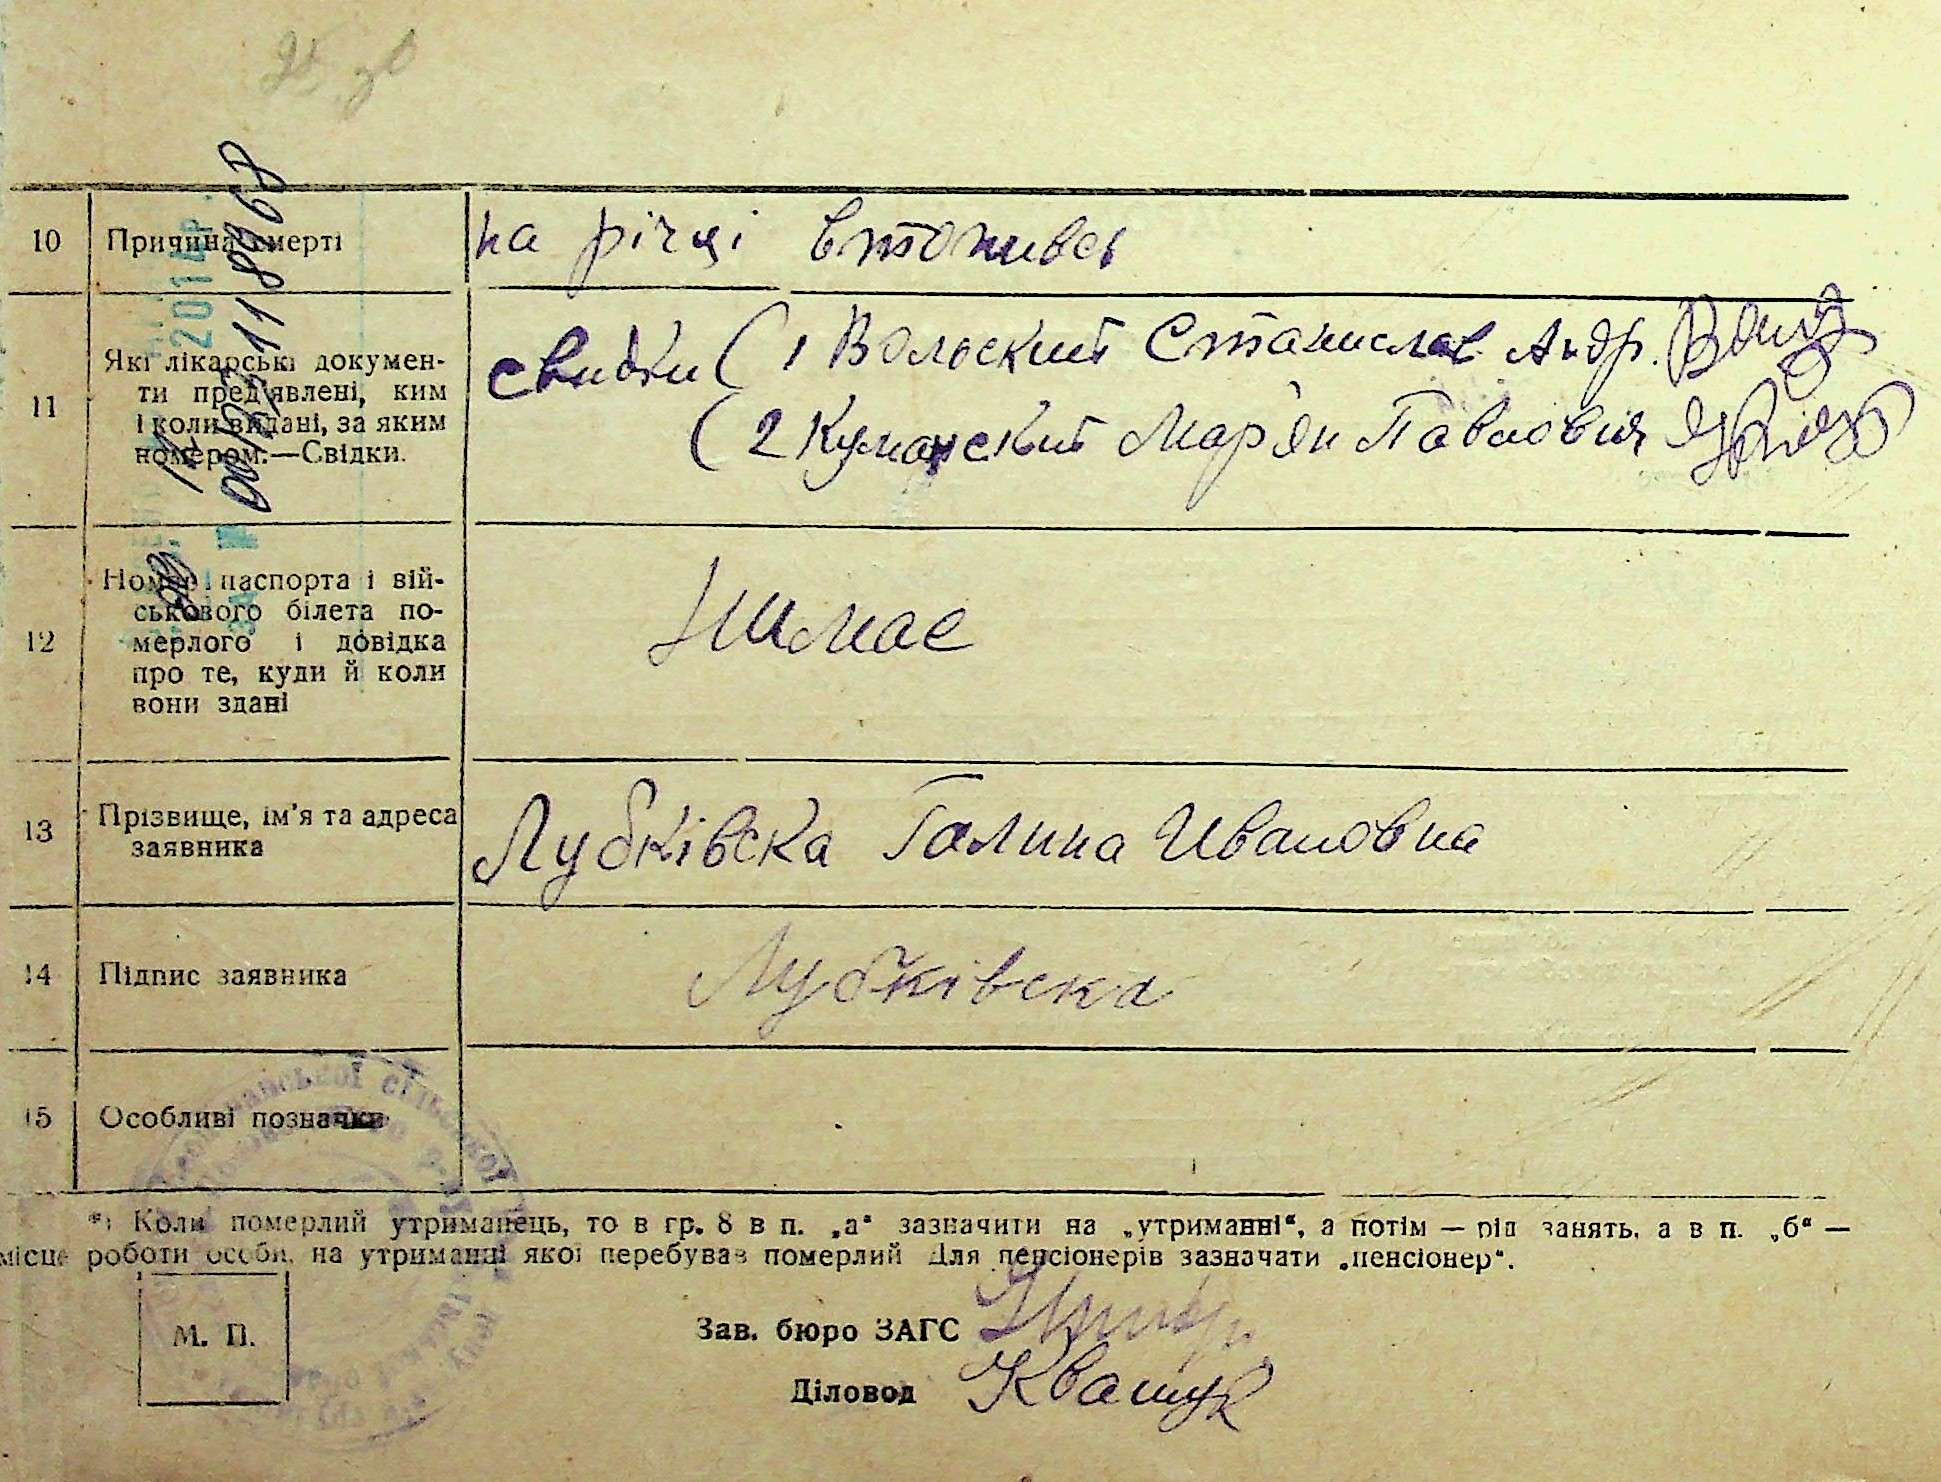 10 Причина смерті на річці втопивсь
11 Які лікарські докумен-
ти пред'явлені, ким
і коли видані, за яким
номером.—Свідки.
свидки ( 1 Вольский Станислав Андр.
( 2 Куманский Мар'ян Павлович
12 Номер паспорта і вій-
ськового білета по-
мерлого і довідка
про те, куди й коли
вони здані
нимае
13 Прізвище, ім'я та адреса
заявника
Лубківска Галина Ивановна
14 Підпис заявника Лубківска
15 Особливі позначки
*) Коли померлий утриманець, то в гр. 8 в п. „а“ зазначити на „утриманні“, а потім — рід занять, а в п. „б“ —
місце роботи особи, на утриманні якої перебував померлий Для пенсіонерів зазначати „пенсіонер“.
М. П.
Зав. бюро ЗАГС
Діловод Квашук
2014 р.